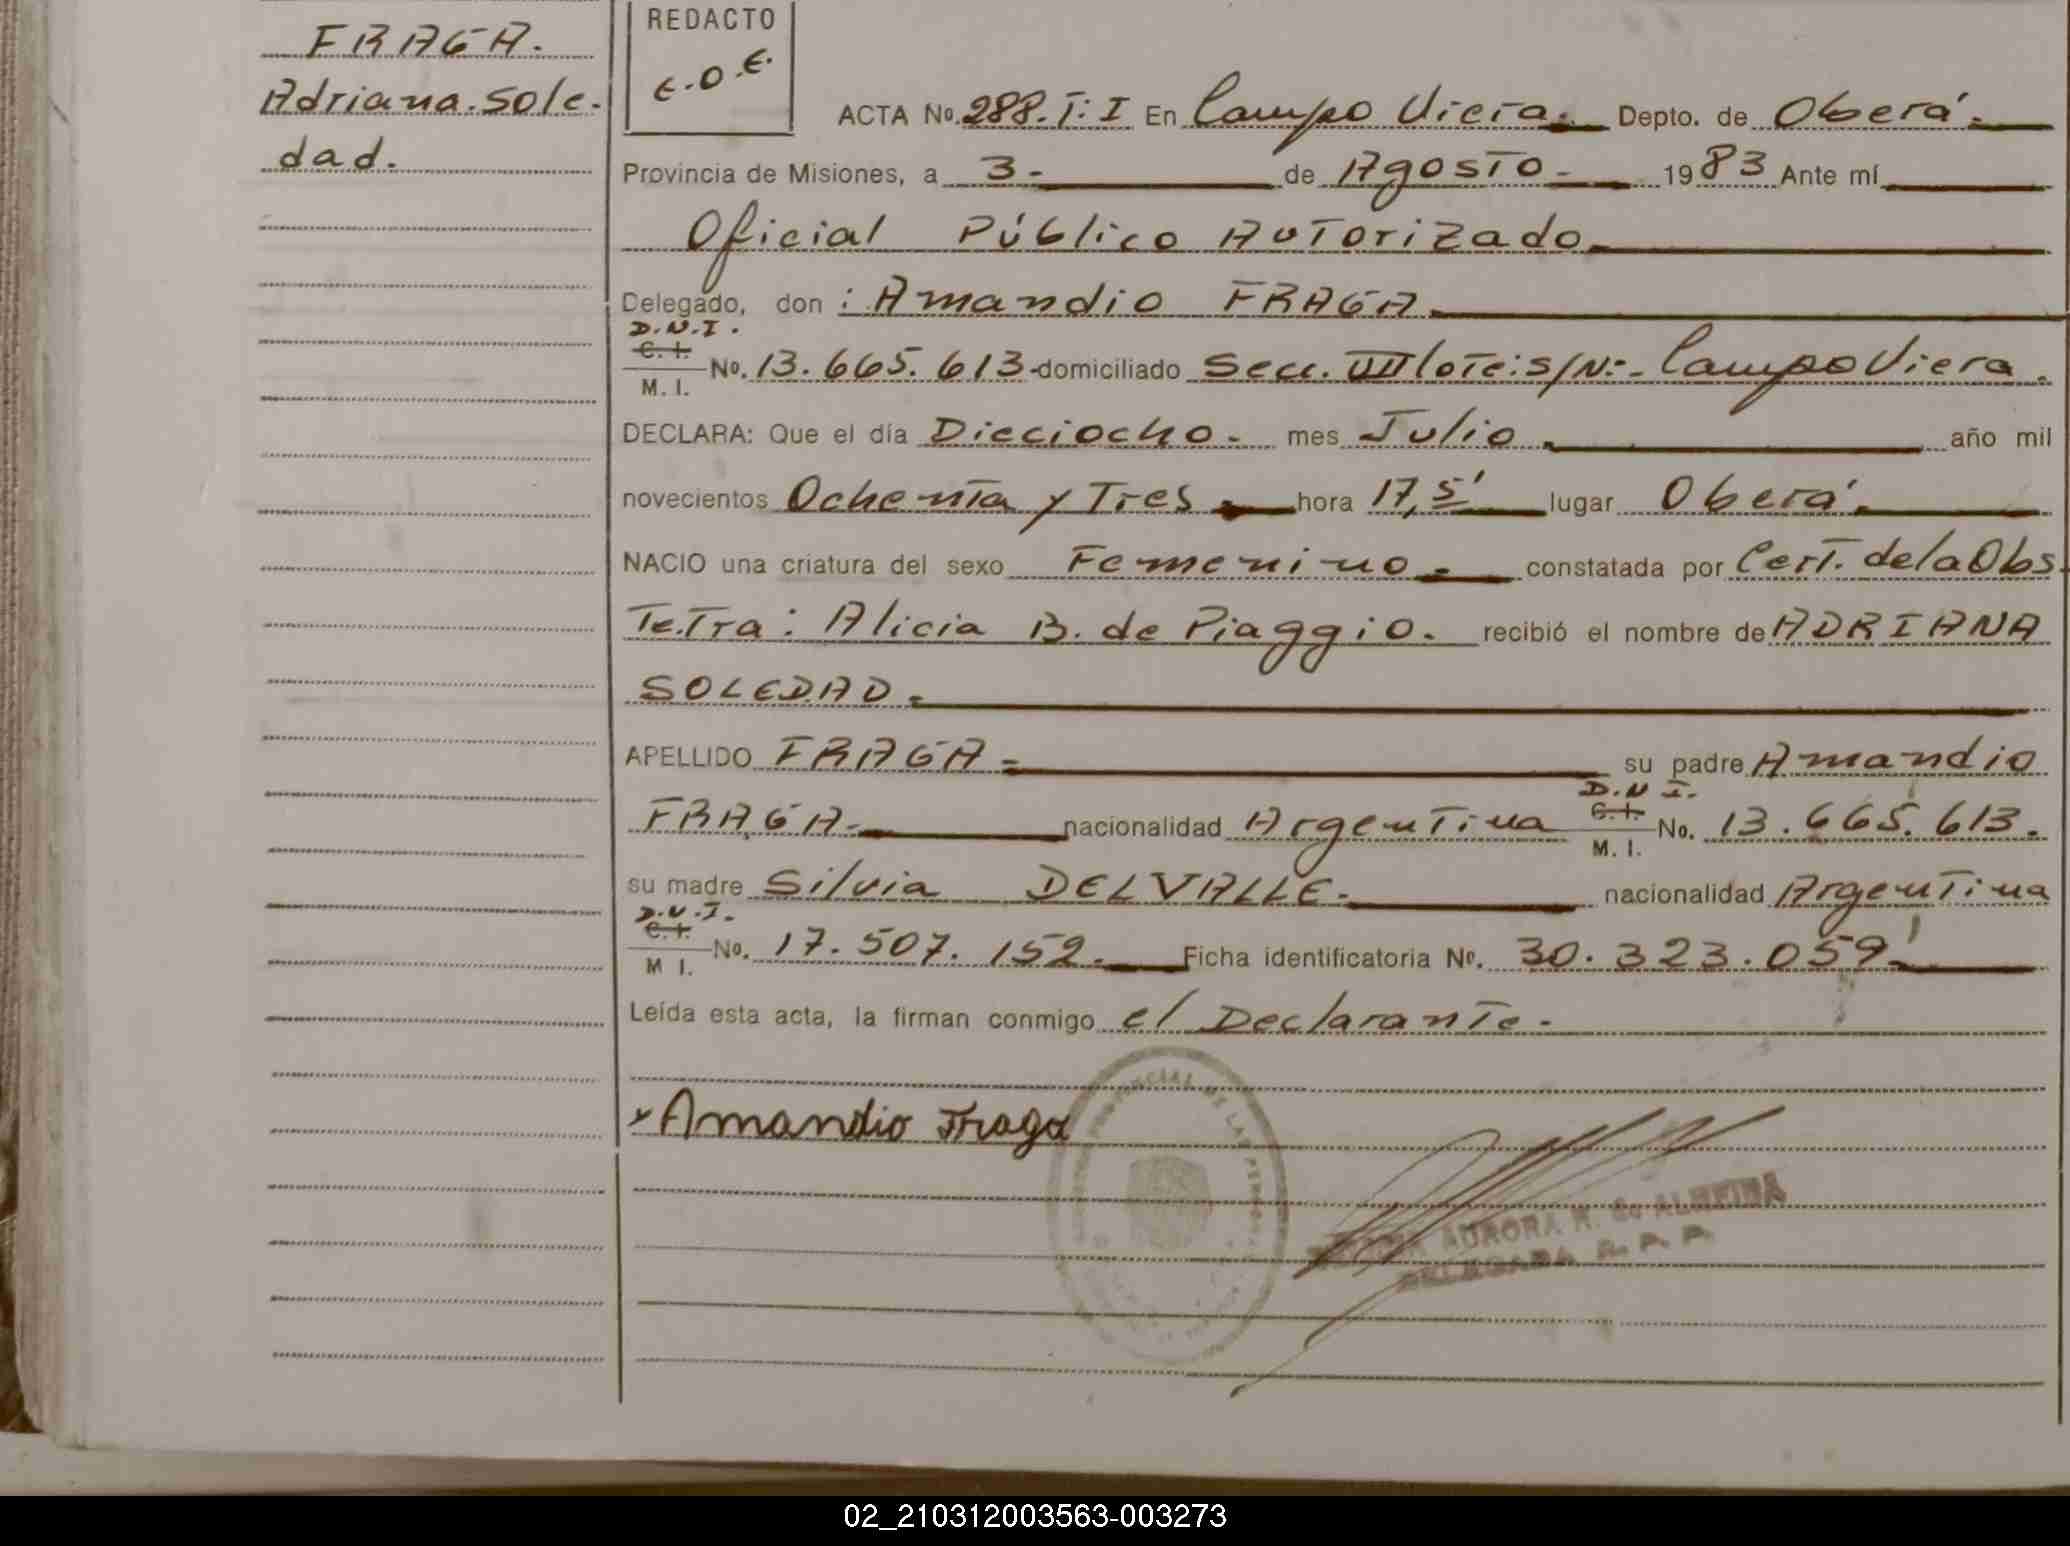 FRAGA.
Adriana.Sole.
dad.
REDACTO
E.O.E.
ACTA No. 288.T:I En Campo Viera. Depto. de Oberá.
Provincia de Misiones, a 3. de Agosto. 1983 Ante mí
Oficial Público Autorizado.
Delegado, don : Amandio FRAGA.
D.N.I.
C.I.
M.I. No. 13.665.613-domiciliado Secc. VIII lote:s/N:- Campo Viera.
DECLARA: Que el día Dieciocho. mes Julio. año mil
novecientos Ochenta y Tres. hora 17,5' lugar Oberá.
NACIO una criatura del sexo Femenino. constatada por Cert. de la Obs
Te.Tra: Alicia B. de Piaggio. recibió el nombre de ADRIANA
SOLEDAD.
APELLIDO FRAGA. su padre Amandio
D.N.I.
FRAGA. nacionalidad Argentina C.I. No. 13.665.613.
M.I.
su madre Silvia DELVALLE. nacionalidad Argentina
D.N.I.
C.I.
M I. No. 17.507.152. Ficha identificatoria No. 30.323.059'
Leída esta acta, la firman conmigo el Declarante.
x Amandio Fraga
AURORA R. de ALMEIDA
DELEGADA R. P. P.
02_210312003563-003273